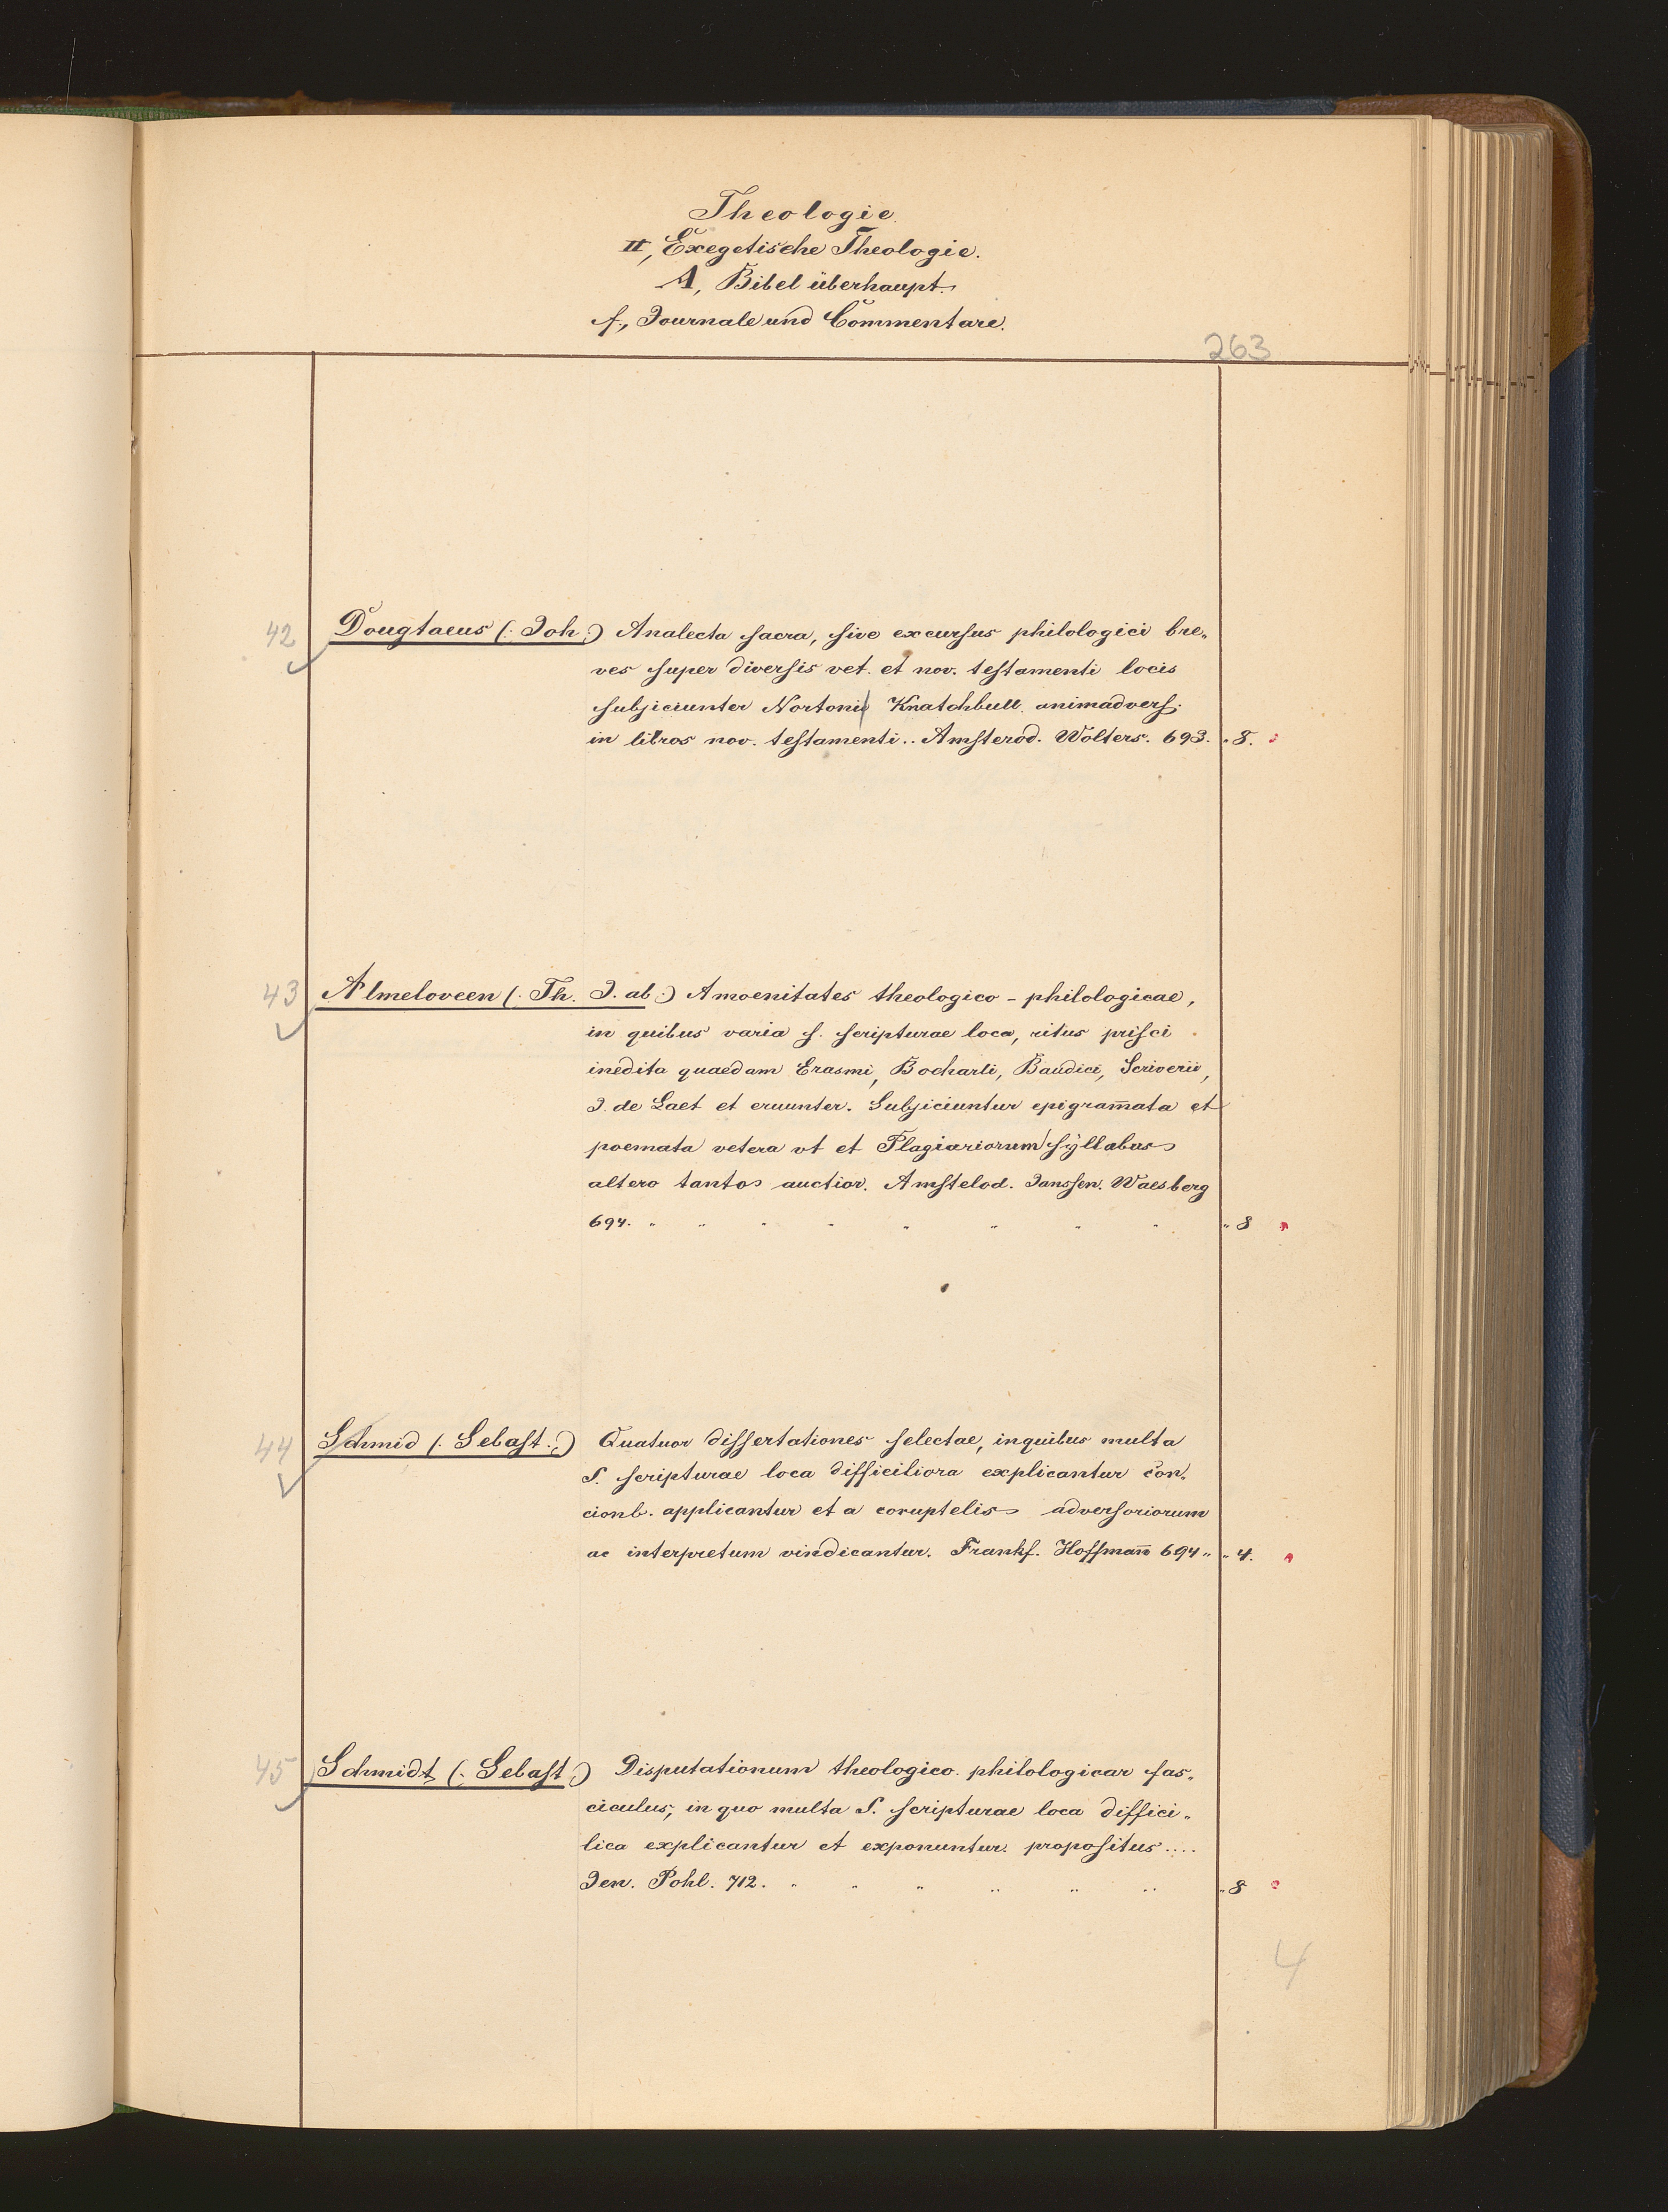 Theologie.
II, Exegetische Theologie.
A, Bibel überhaupt.
f., Journale und Commentare.
263
42 Dougtaeus (: Joh :) Analecta sacra, sive excursus philologici bre„
ves super diversis vet. et nov. testamenti locis
subjiciunter Nortoni Knatchbull. animadvers.
in libros nov. testamenti .. Amsterod. Wolters. 693. „ 8.
43 Almeloveen (: Th. J. ab :) Amoenitates theologico - philologicae,
in quibus varia s. scripturae loca, ritus prisci
inedita quaedam Erasmi, Bocharti, Baudici, Scriverii,
J. de Laet et eruunter. Subjiciuntur epigram̅ata et
poemata vetera vt et Plagiariorum syllabus
altero tantos auctior. Amstelod. Janssen. Waesberg
694. „ „ „ „ „ „ „ „ „ 8
44 Schmid (: Sebast. :) Quatuor dissertationes selectae, inquibus multa
S. scripturae loca difficiliora explicantur con„
cionb. applicantur et a coruptelis adversoriorum
ac interpretum vindicantur. Frankf. Hoffman̅ 694 „ „ 4.
45 Schmidt (: Sebast :) Disputationum theologico. philologicar fas„
ciculus, in quo multa S. scripturae loca diffici„
lica explicantur et exponuntur. propositus ....
Jen. Pohl. 712. „ „ „ „ „ „ „ 8
4